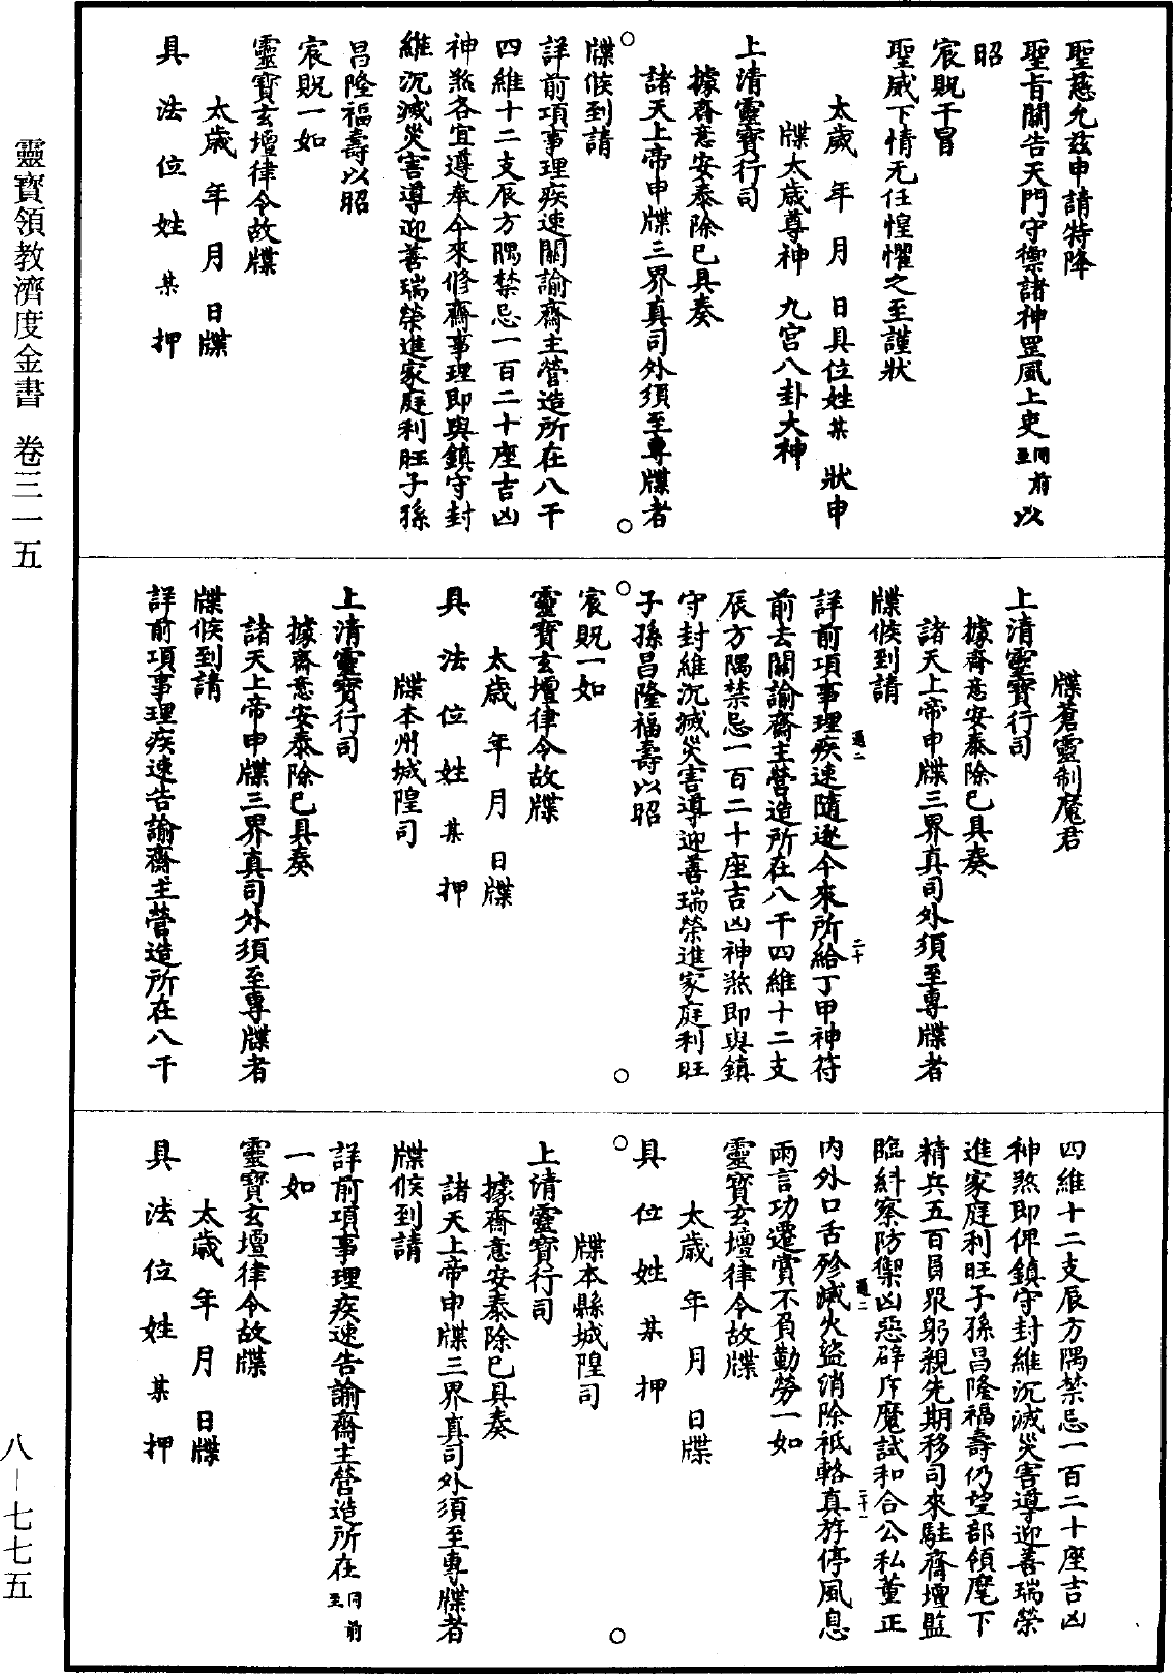 聖慈允兹申請特降
聖旨關告天門守禦諸神罡風上吏至同前以
昭
宸貺干冒
聖威下情无任惶懼之至謹狀
太歲　年　月　日具位姓某　狀申
牒太歲尊神　九宮八卦大神
上清靈寶行司
據齋意安泰除已具奏
諸天上帝申牒三界真司外須至專牒者
牒候到請
詳前項事理疾速關諭齋主營造所在八干
四維十二支辰方隅禁忌一百二十座吉凶
神煞各宜遵奉今來修齋事理即與鎮守封
維沉滅災害導迎善瑞榮進家庭利旺子孫
昌隆福壽以昭
宸貺一如
靈寶玄壇律令故牒
太歲　年　月　日牒
具　法　位　姓　某　押
牒蒼靈制魔君
上清靈寶行司
據齋意安泰除已具奏
諸天上帝申牒三界真司外須至專牒者
牒候到請
詳前項事理疾速隨逐今來所給丁甲神符
前去關諭齋主營造所在八干四維十二支
辰方隅禁忌一百二十座吉凶神煞即與鎮
守封維沉滅災害導迎善瑞榮進家庭利旺
子孫昌隆福壽以昭
宸貺一如
靈寶玄壇律令故牒
太歲　年　月　日牒
具　法　位　姓　某　押
牒本州城隍司
上清靈寶行司
據齋意安泰除已具奏
諸天上帝申牒三界真司外須至專牒者
牒候到請
詳前項事理疾速告諭齋主營造所在八干
四維十二支辰方隅禁忌一百二十座吉凶
神煞即俾鎮守封維沉滅災害導迎善瑞榮
進家庭利旺子孫昌隆福壽仍望部領麾下
精兵五百員眾躬親先期移司來駐齋壇監
臨糾察防禦凶惡辟斥魔試和合公私董正
內外口舌殄滅火盜消除祇輅真斿停風息
雨言功遷賞不負勤勞一如
靈寶玄壇律令故牒
太歲　年　月　日牒
具　位　姓　某　押
牒本縣城隍司
上清靈寶行司
據齋意安泰除已具奏
諸天上帝申牒三界真司外須至專牒者
牒候到請
詳前項事理疾速告諭齋主營造所在至同前
一如
靈寶玄壇律令故牒
太歲　年　月　日牒
具　法　位　姓　某　押
靈寶領教濟度金書　卷三一五
八－七七五